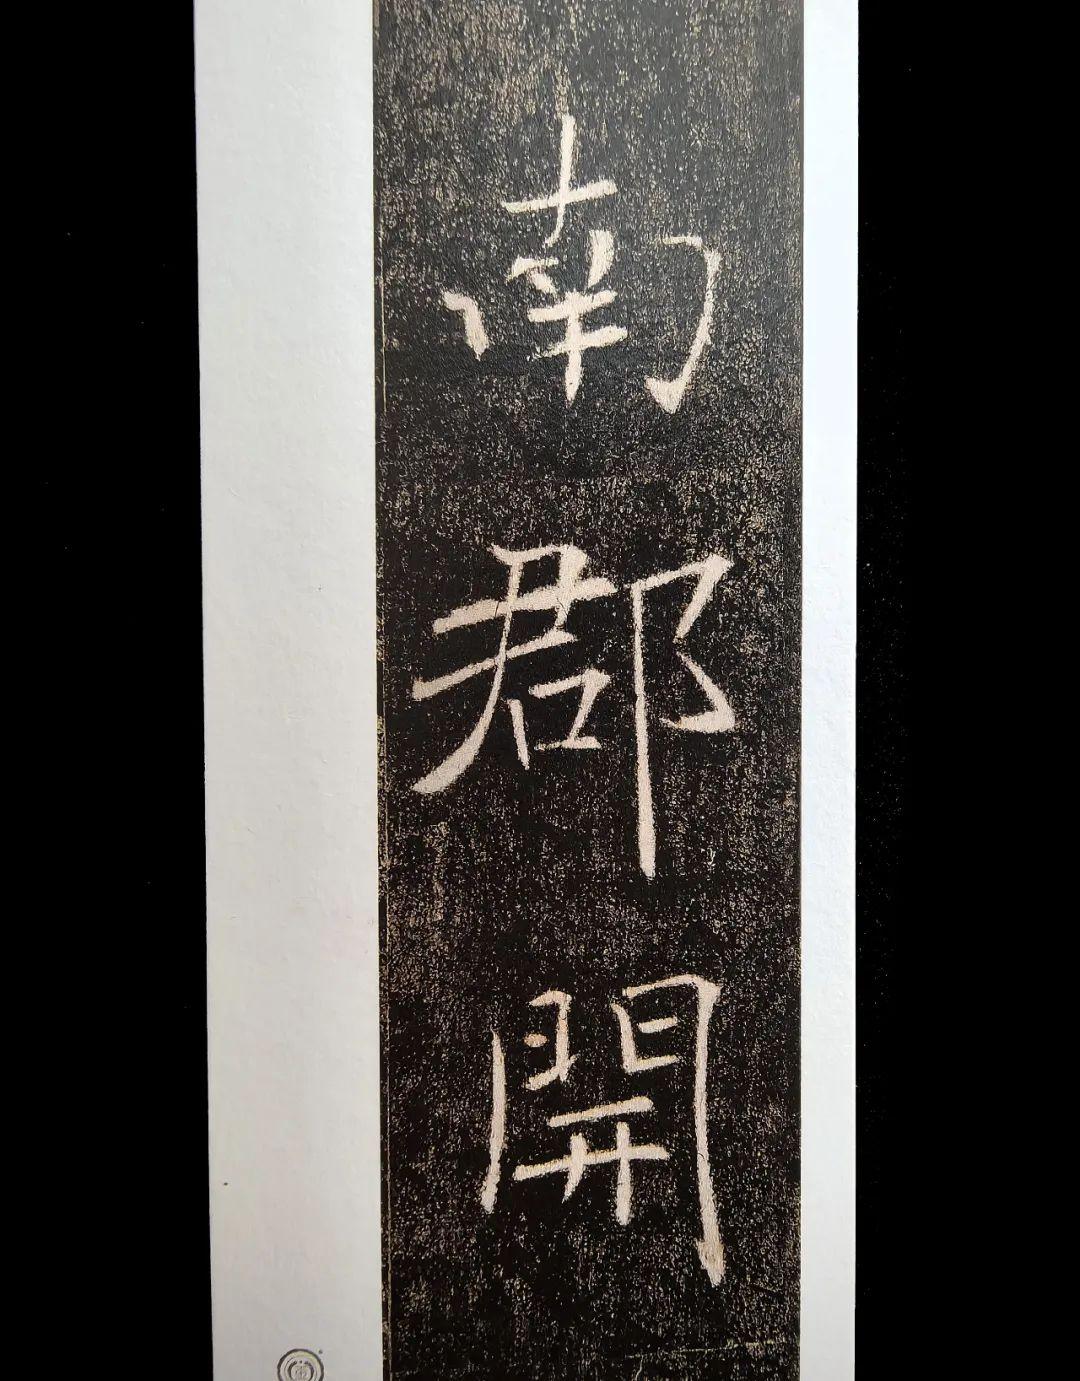 南郡開